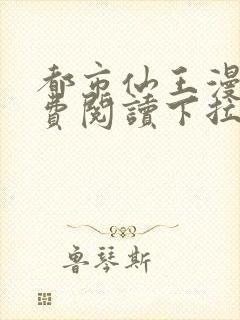 都市仙王漫
費閱讀下拉
魯琴斯